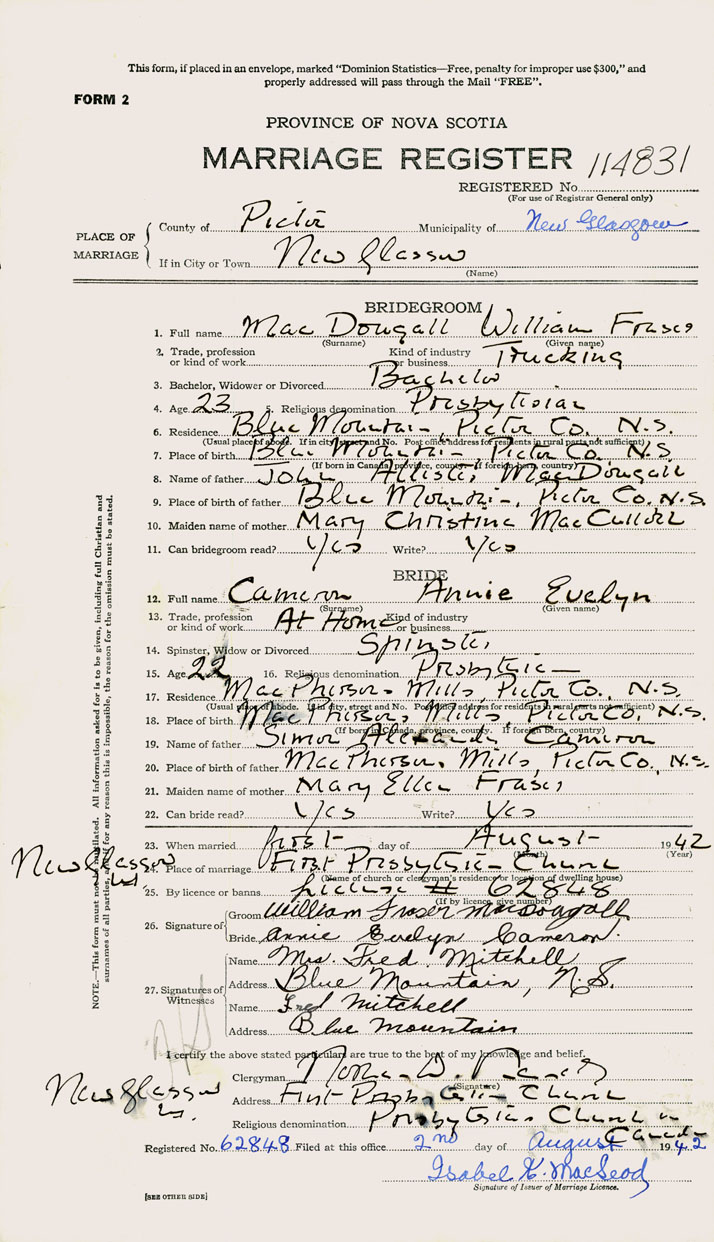 This form, if placed in an envelope, marked "Dominion Statistics—Free, penalty for improper use $300," and
properly addressed will pass through the Mail "FREE".
FORM 2
PROVINCE OF NOVA SCOTIA
MARRIAGE REGISTER 114831
REGISTERED No.
(For use of Registrar General only)
PLACE OF MARRIAGE
County of Pictou Municipality of New Glasgow
If in City or Town New Glasgow
(Name)
BRIDEGROOM
1. Full name MacDougall William Fraser
(Surname) (Given name)
2. Trade, profession or kind of work Kind of industry or business Trucking
3. Bachelor, Widower or Divorced Bachelor
4. Age 23 5. Religious denomination Presbyterian
6. Residence Blue Mountain, Pictou Co. N.S.
(Usual place of abode. If in city, street and No. Post office address for residents in rural parts not sufficient)
7. Place of birth Blue Mountain, Pictou Co. N.S
(If born in Canada, province, county. If foreign born, country)
8. Name of father John Allister MacDougall
9. Place of birth of father Blue Mountain, Pictou Co. N.S
10. Maiden name of mother Mary Christina MacCulloch
11. Can bridegroom read? Yes Write? Yes
BRIDE
12. Full name Cameron Annie Evelyn
(Surname) (Given name)
13. Trade, profession or kind of work At Home Kind of industry or business
14. Spinster, Widow or Divorced Spinster
15. Age 22 16. Religious denomination Presbyterian
17. Residence MacPhersons Mills, Pictou Co., N.S.
(Usual place of abode. If in city, street and No. Post office address for residents in rural parts not sufficient)
18. Place of birth MacPhersons Mills, Pictou Co, N.S.
(If born in Canada, province, county. If foreign born, country)
19. Name of father Simon Alexander Cameron
20. Place of birth of father MacPhersons Mills, Pictou Co., N.S.
21. Maiden name of mother Mary Ellen Fraser
22. Can bride read? Yes Write? Yes
23. When married first day of August 1942
(Month) (Year)
24. Place of marriage First Presbyterian Church
New Glasgow
N.S.
(Name of church or clergyman's residence or location of dwelling house)
25. By licence or banns License # 62848
(If by licence, give number)
26. Signature of
Groom William Fraser MacDougall
Bride Annie Evelyn Cameron.
27. Signatures of Witnesses
Name Mrs. Fred Mitchell
Address Blue Mountain, N.S.
Name Fred Mitchell
Address Blue Mountain
I certify the above stated particulars are true to the best of my knowledge and belief.
Clergyman
(Signature)
Address First Presbyterian Church
New Glasgow
N.S.
Religious denomination Presbyterian Church in
Canada
Registered No. 62848 Filed at this office 2nd day of August 1942
Isabel K. MacLeod
Signature of Issuer of Marriage Licence.
[SEE OTHER SIDE]
NOTE.—This form must not be mutilated. All information asked for is to be given, including full Christian and
surnames of all parties, and if for any reason this is impossible, the reason for the omission must be stated.